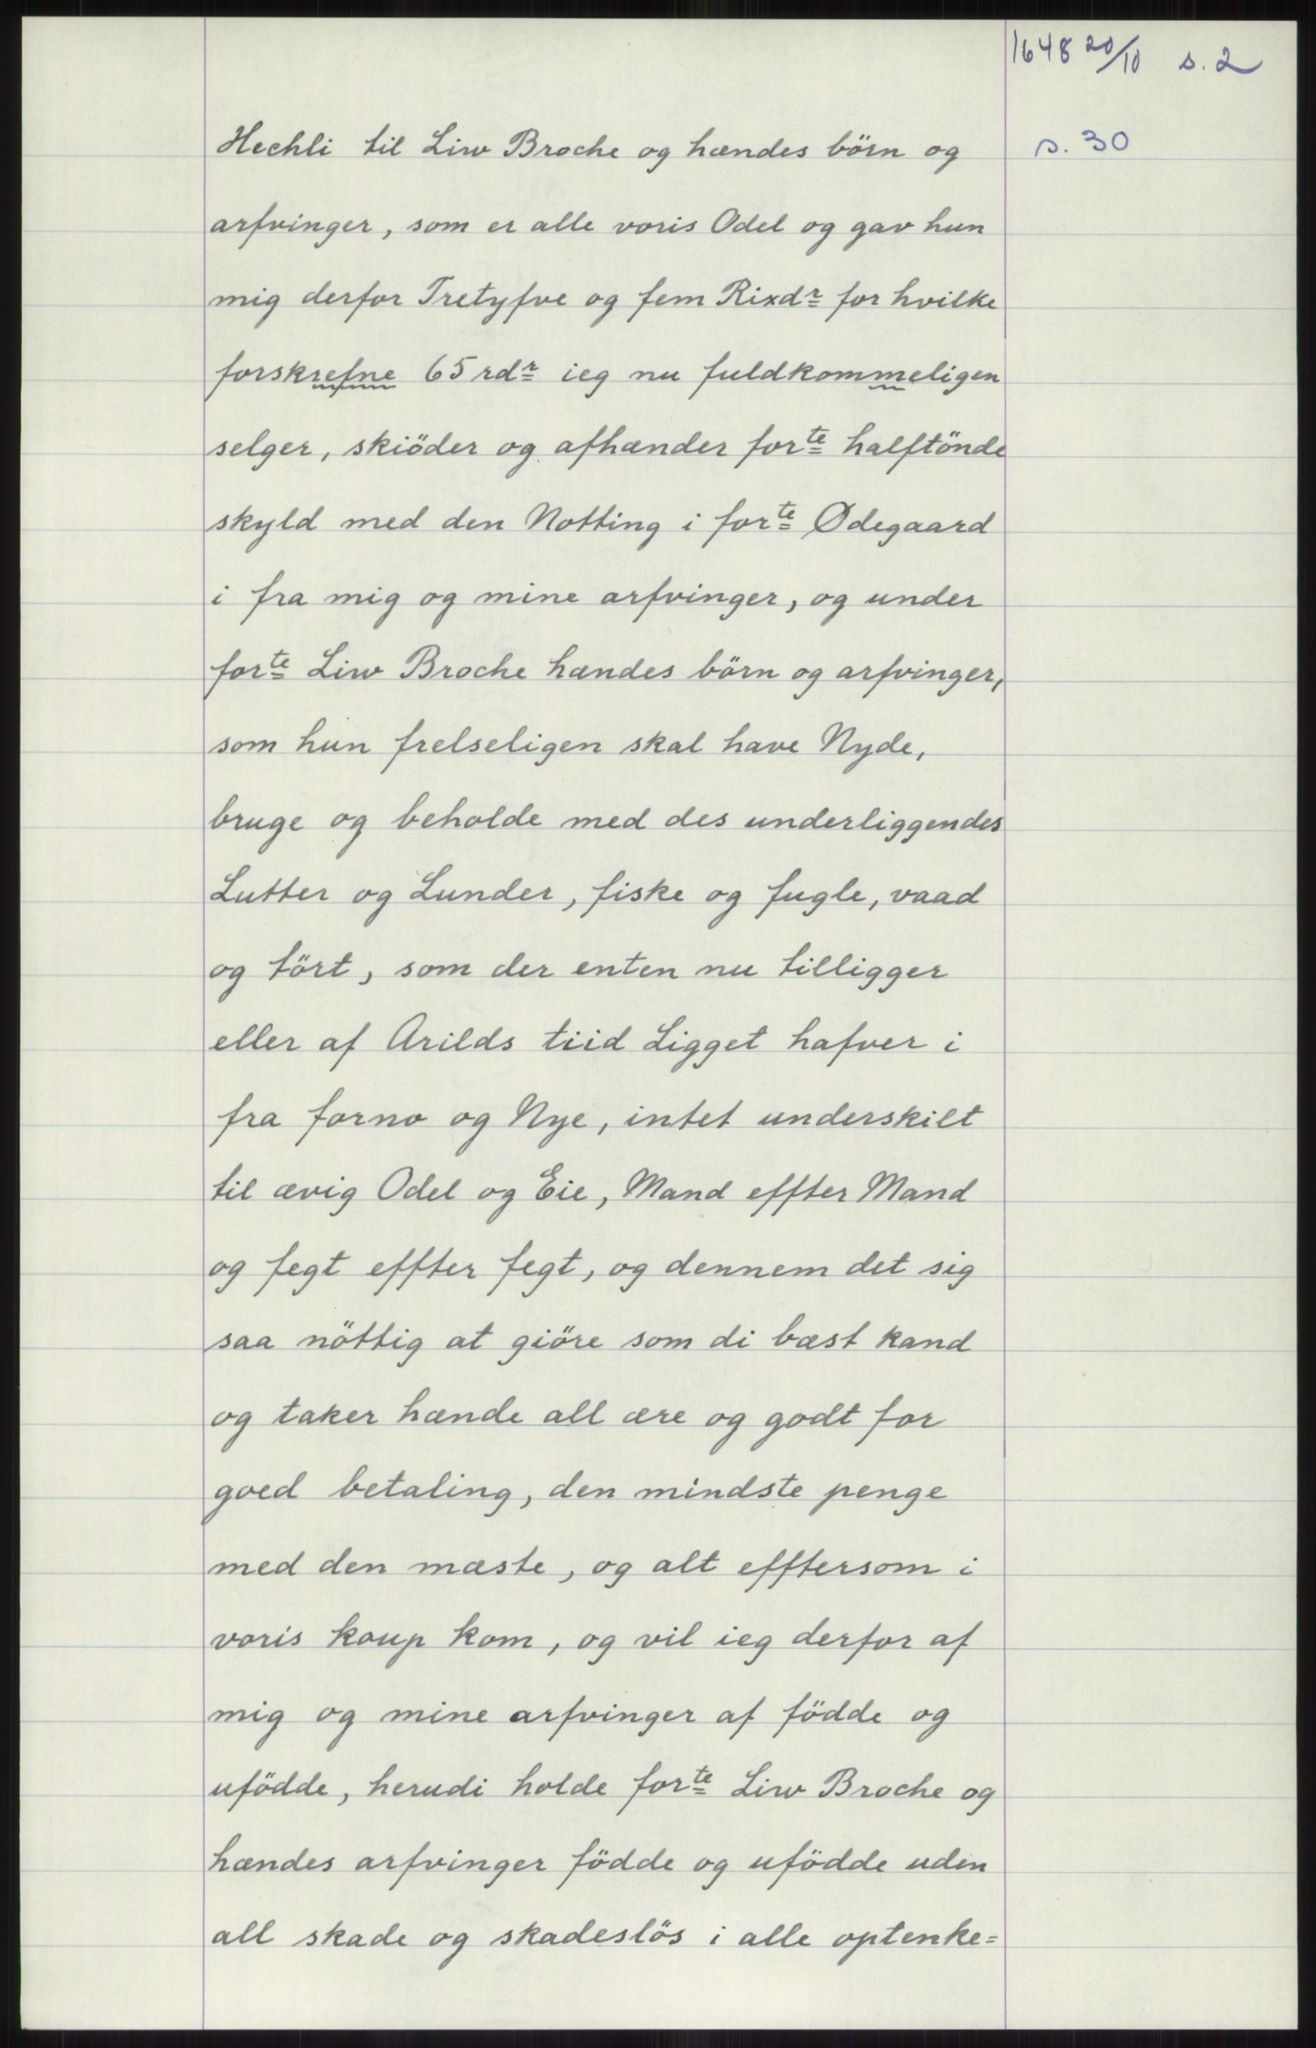 1648 20/10 s. 2
s. 30
Hechli til Liw Broche og hændes börn og
arfvinger, som er alle voris Odel og gav hun
mig derfor Tretyfve og fem Rixdr for hvilke
forskrefne 65 rdr ieg nu fuldkommeligen
selger, skiöder og afhænder forte halftönde
skyld med den Notting i forte Ødegaard
i fra mig og mine arfvinger, og under
forte Liw Broche hændes börn og arfvinger,
som hun frelseligen skal have Nyde,
bruge og beholde med des underliggendes
Lutter og Lunder, fiske og fugle, vaad
og tört, som der enten nu tilligger
eller af Arilds tiid Ligget hafver i
fra forno og Nye, intet underskilt
til ævig Odel og Eie, Mand effter Mand
og fegt effter fegt, og dennem det sig
saa nöttig at giöre som di bæst kand
og taker hænde all ære og godt for
goed betaling, den mindste penge
med den mæste, og alt efftersom i
voris koup kom, og vil ieg derfor af
mig og mine arfvinger af födde og
ufödde, herudi holde forte Liw Broche og
hændes arfvinger födde og ufödde uden
all skade og skadeslös i alle optenke=